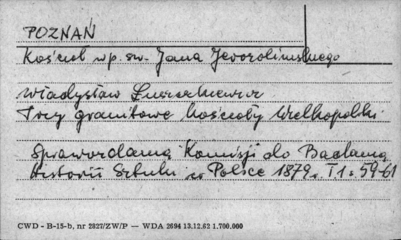 POZNAŃ
Kościół p.w. św. Jana Jerozolimskiego
Władysław Łuszczkiewicz
Trzy granitowe kościoły Wielkopolski
Sprawozdania Komisji do Badania
Historii Sztuki w Polsce 1879 r. T 1 s. 59-61
CWD - B-15-b, nr 2827/ZW/P — WDA 2694 13.12.62 1.700.000